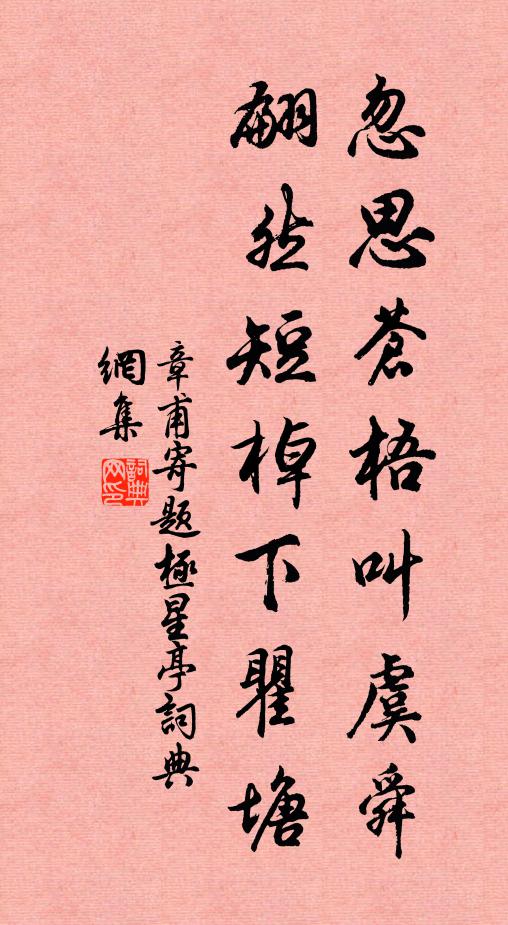 忽思蒼梧叫虞舜
翩然短棹下瞿塘
章甫寄題極星亭詞典
網集
詞典
网印